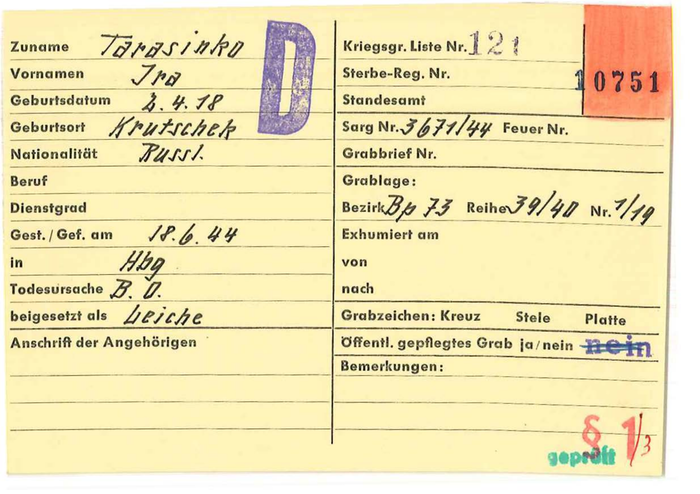 Zuname Tarasinko
Vornamen Ira
Geburtsdatum 2.4.18
Geburtsort Krutschek
Nationalität Russl.
Beruf
Dienstgrad
Gest./Gef. am 18.6.44
in Hbg
Todesursache B. O.
beigesetzt als Leiche
Anschrift der Angehörigen
D
Kriegsgr. Liste Nr. 121
10751
Sterbe-Reg. Nr.
Standesamt
Sarg Nr. 3671/44 Feuer Nr.
Grabbrief Nr.
Grablage:
Bezirk Bp 73 Reihe 39/40 Nr. 1/19
Exhumiert am
von
nach
Grabzeichen: Kreuz Stele Platte
Öffentl. gepflegtes Grab ja/nein nein
Bemerkungen:
§ 1/3
geprüft